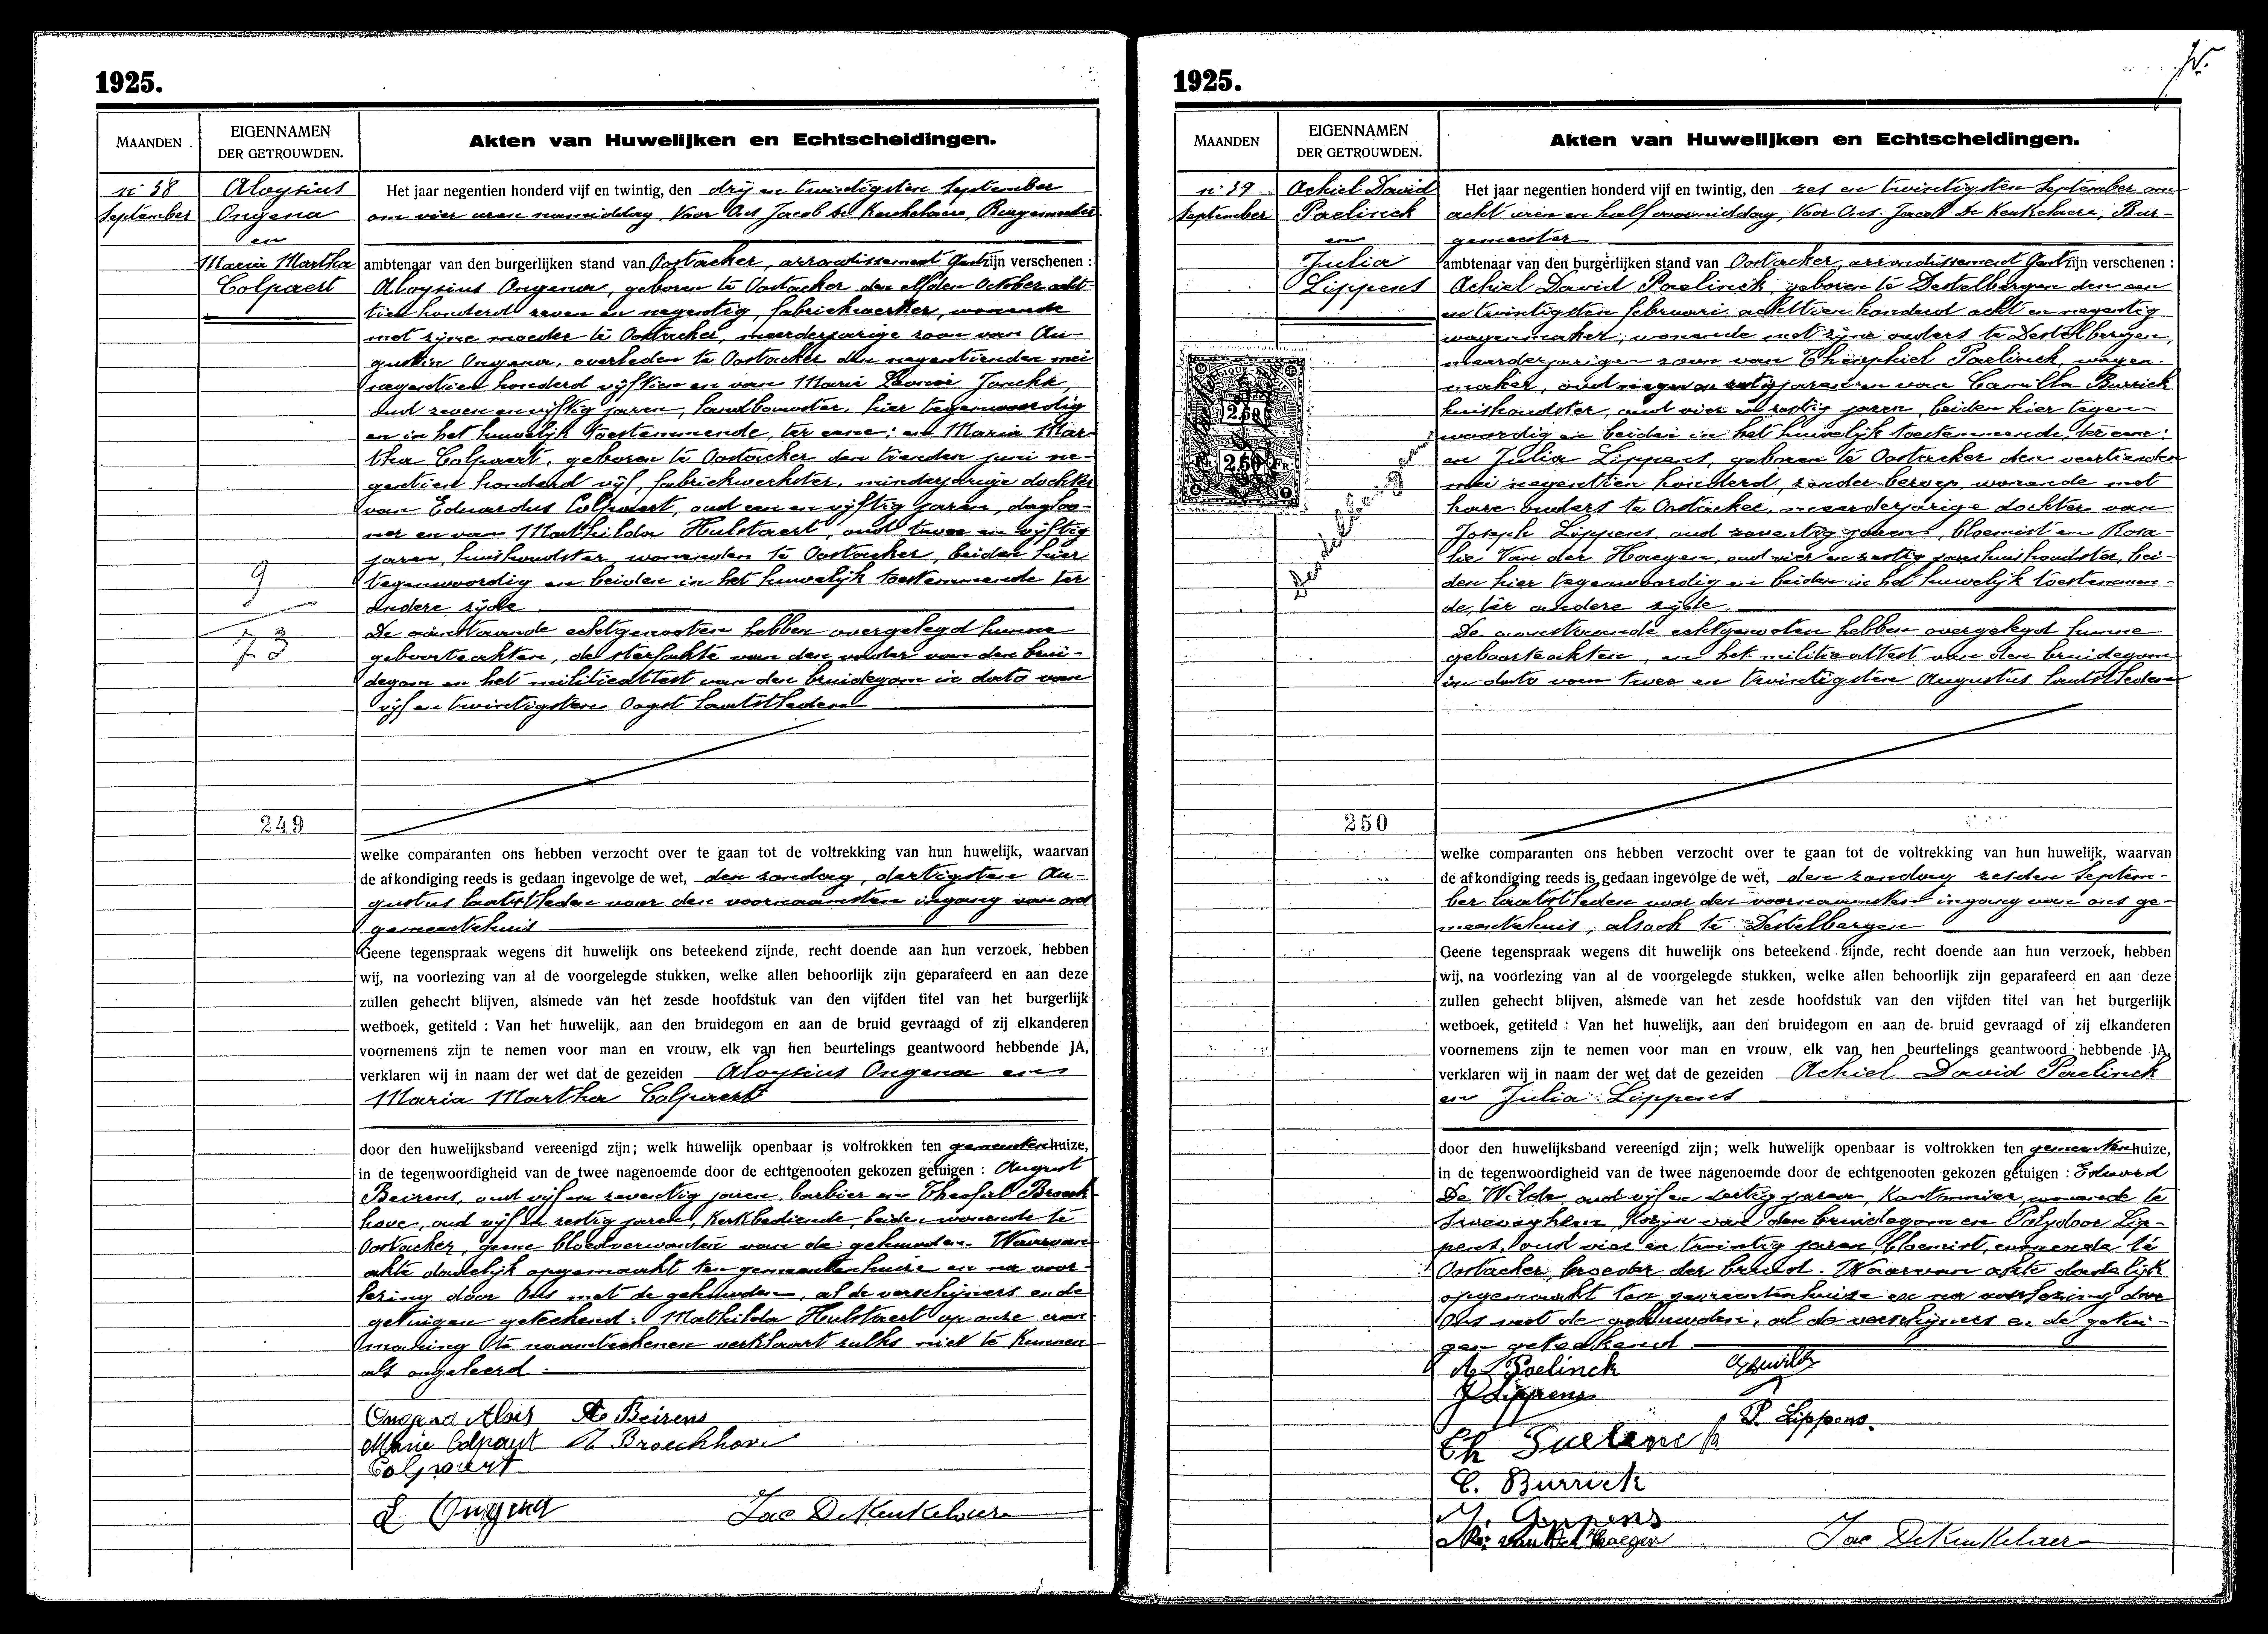 1925.
MAANDEN
EIGENNAMEN
DER GETROUWDEN.
Akten van Huwelijken en Echtscheidingen.
n° 38
September
Aloysius
Ongena
en
Maria Martha
Colpaert
9
73
249
Het jaar negentien honderd vijf en twintig, den drij en twintigsten September
om vier uren namiddag, Voor Ons Jacob De Keukelaere, Burgemeester
ambtenaar van den burgerlijken stand van Oostacker, arrondissement Gent zijn verschenen :
Aloysius Ongena, geboren te Oostacker den elfden October acht-
tien honderd zeven en negentig, fabriekwerker, wonende
met zijne moeder te Oostacker, meerderjarige zoon van Au-
gustin Ongena, overleden te Oostacker den negentienden mei
negentien honderd vijftien en van Marie Leonie
oud zeven en vijftig jaren, landbouwster, hier tegenwoordig
en in het huwelijk toestemmende, ter eene; en Maria Mar-
tha Colpaert, geboren te Oostacker den tienden juni ne-
gentien honderd vijf, fabriekwerkster, minderjarige dochter
van Eduardus Colpaert, oud een en vijftig jaren, dagloo-
ner en van Mathilda Hulstaert, oud twee en vijftig
jaren, huishoudster, wonenden te Oostacker, beiden hier
tegenwoordig en beiden in het huwelijk toestemmende ter
andere zijde
De aanstaande echtgenooten hebben overgelegd hunne
geboorteakten, de sterfakte van den vader van den brui-
degom en het militieattest van den bruidegom in dato van
vijf en twintigsten Oogst laatstleden
welke comparanten ons hebben verzocht over te gaan tot de voltrekking van hun huwelijk, waarvan
de afkondiging reeds is gedaan ingevolge de wet, den zondag, dertigsten Au-
gustus laatstleden voor den voornaamsten ingang van ons
gemeentehuis
Geene tegenspraak wegens dit huwelijk ons beteekend zijnde, recht doende aan hun verzoek, hebben
wij, na voorlezing van al de voorgelegde stukken, welke allen behoorlijk zijn geparafeerd en aan deze
zullen gehecht blijven, alsmede van het zesde hoofdstuk van den vijfden titel van het burgerlijk
wetboek, getiteld : Van het huwelijk, aan den bruidegom en aan de bruid gevraagd of zij elkanderen
voornemens zijn te nemen voor man en vrouw, elk van hen beurtelings geantwoord hebbende JA,
verklaren wij in naam der wet dat de gezeiden Aloysius Ongena en
Maria Martha Colpaert
door den huwelijksband vereenigd zijn; welk huwelijk openbaar is voltrokken ten gemeentenhuize,
in de tegenwoordigheid van de twee nagenoemde door de echtgenooten gekozen getuigen : August
Beirens, oud vijf en zeventig jaren, barbier en Theofiel Broeck-
hove, oud vijf en zestig jaren, kerkbediende, beiden wonende te
Oostacker, geene bloedverwanten van de gehuwden. Waarvan
akte dadelijk opgemaakt ten gemeentenhuize en na voor-
lezing door Ons met de gehuwden, al de verschijners en de
getuigen geteekend; Mathilda Hulstaert op onze aan-
maning te naamteekenen verklaart zulks niet te kunnen
als ongeleerd.
Ongena Alois A. Beirens
Marie Colpaert T. Broeckhove
Colpaert
L Ongena Jac DeKeukelaere
1925.
MAANDEN
EIGENNAMEN
DER GETROUWDEN.
Akten van Huwelijken en Echtscheidingen.
n° 39
September
Achiel David
Paelinck
en
Julia
Lippens
2.50
2.50 FR.
Destelbergen
250
Het jaar negentien honderd vijf en twintig, den zes en twintigsten September om
acht uren en half voormiddag, Voor Ons. Jacob De Keukelaere, Bur-
gemeester
ambtenaar van den burgerlijken stand van Oostacker, arrondissement Gent zijn verschenen :
Achiel David Paelinck, geboren te Destelbergen den een
en twintigsten februari achttien honderd acht en negentig
wagenmaker, wonende met zijne ouders te Destelbergen,
meerderjarigen zoon van Théophiel Paelinck, wagen-
maker, oud negen en zestig jaren en van Camilla Burrick
huishoudster, oud vier en zestig jaren, beiden hier tegen-
woordig en beiden in het huwelijk toestemmende, ter eene;
en Julia Lippens, geboren te Oostacker den veertienden
mei negentien honderd, zonder beroep, wonende met
hare ouders te Oostacker, meerderjarige dochter van
Joseph Lippens, oud zeventig jaren, bloemist en Rosa-
lie Van der Haegen, oud vier en zestig jaren huishoudster, bei-
den hier tegenwoordig en beiden in het huwelijk toestemmen-
de, ter andere zijde.
De aanstaande echtgenooten hebben overgelegd hunne
geboorteakten, en het militieattest van den bruidegom
in dato van twee en twintigsten Augustus laatstleden
welke comparanten ons hebben verzocht over te gaan tot de voltrekking van hun huwelijk, waarvan
de afkondiging reeds is gedaan ingevolge de wet, den zondag zesden Septem-
ber laatstleden voor den voornaamsten ingang van ons ge-
meentehuis, alsook te Destelbergen
Geene tegenspraak wegens dit huwelijk ons beteekend zijnde, recht doende aan hun verzoek, hebben
wij, na voorlezing van al de voorgelegde stukken, welke allen behoorlijk zijn geparafeerd en aan deze
zullen gehecht blijven, alsmede van het zesde hoofdstuk van den vijfden titel van het burgerlijk
wetboek, getiteld : Van het huwelijk, aan den bruidegom en aan de bruid gevraagd of zij elkanderen
voornemens zijn te nemen voor man en vrouw, elk van hen beurtelings geantwoord hebbende JA,
verklaren wij in naam der wet dat de gezeiden Achiel David Paelinck
en Julia Lippens
door den huwelijksband vereenigd zijn; welk huwelijk openbaar is voltrokken ten gemeentenhuize,
in de tegenwoordigheid van de twee nagenoemde door de echtgenooten gekozen getuigen : Eduard
De Wilde, oud vijf en dertig jaren, Kantonnier, wonende te
Kozijn van den bruidegom en Polydoor Lip-
pens, oud vier en twintig jaren, bloemist, wonende te
Oostacker, broeder der bruid. Waarvan akte dadelijk
opgemaakt ten gemeentenhuize en na voorlezing door
Ons met de gehuwden, al de verschijners en de getui-
gen geteekend
A. Paelinck
J Lippens
P. Lippens.
Th Paelinck
C. Burrick
J. Lippens
Ro. van der Haegen Jac DeKeukelaere